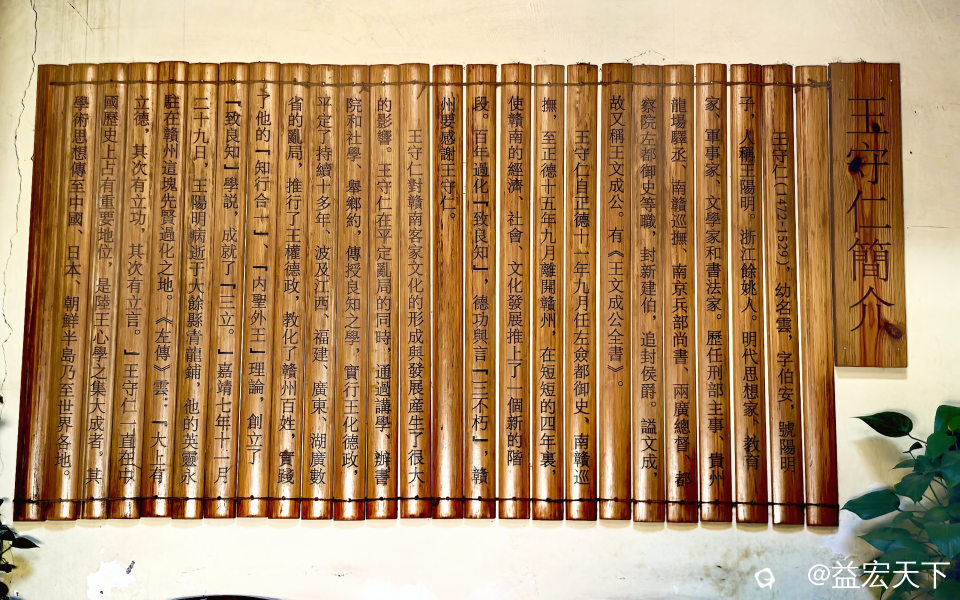 王守仁簡介
王守仁(1472-1529)，幼名雲，字伯安，號陽明
子，人稱王陽明。浙江餘姚人。明代思想家、教育
家、軍事家、文學家和書法家。歷任刑部主事、貴州
龍場驛丞、南贛巡撫、南京兵部尚書、兩廣總督、都
察院左都御史等職，封新建伯，追封侯爵。謚文成，
故又稱王文成公。有《王文成公全書》。
王守仁自正德十一年九月任左僉都御史、南贛巡
撫，至正德十五年九月離開贛州，在短短的四年裏，
使贛南的經濟、社會、文化發展推上了一個新的階
段。百年過化『致良知』，德功與言『三不朽』，贛
州要感謝王守仁。
王守仁對贛南客家文化的形成與發展産生了很大
的影響。王守仁在平定亂局的同時，通過講學、辦書
院和社學、舉鄉約，傳授良知之學，實行王化德政，
平定了持續十多年、波及江西、福建、廣東、湖廣數
省的亂局，推行了王權德政，教化了贛州百姓，實踐
了他的『知行合一』、『内聖外王』理論，創立了
『致良知』學説，成就了『三立。』嘉靖七年十一月
二十九日，王陽明病逝于大餘縣青龍鋪，他的英靈永
駐在贛州這塊先賢過化之地。《左傳》雲：『大上有
立德，其次有立功，其次有立言。』王守仁一直在中
國歷史上占有重要地位，是陸王心學之集大成者。其
學術思想傳至中國、日本、朝鮮半島乃至世界各地。
@益宏天下